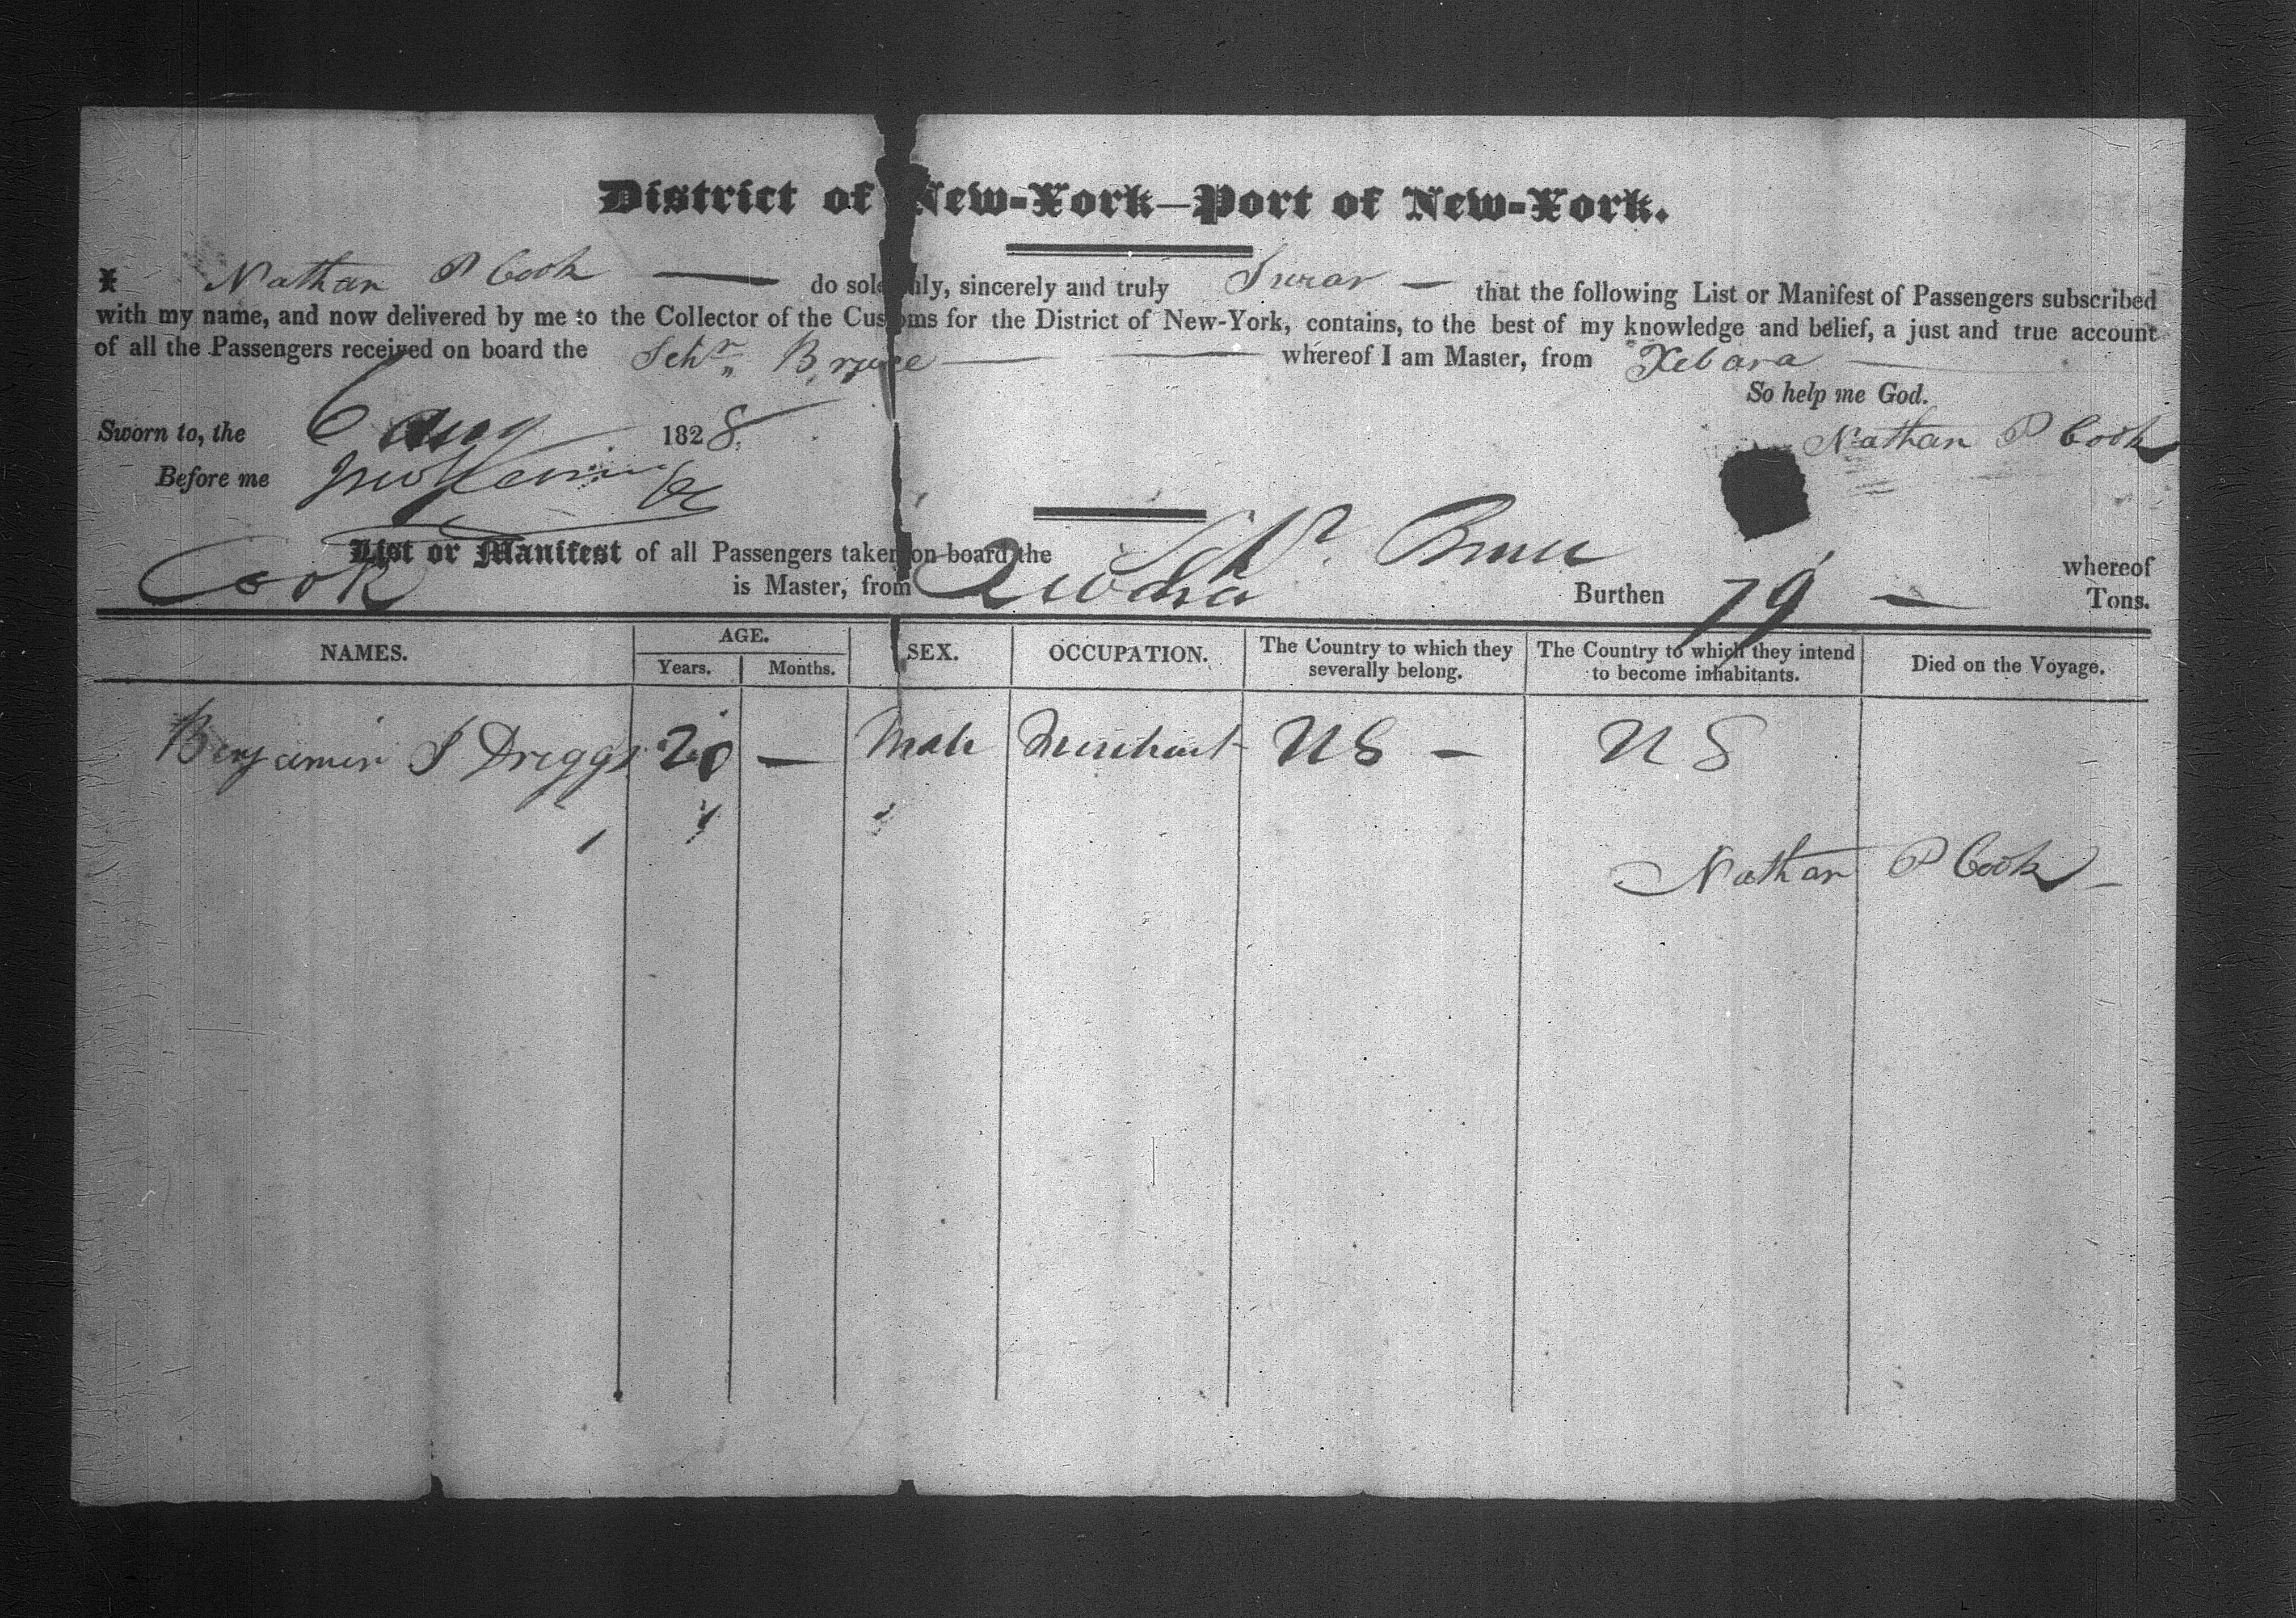 District of New-York—Port of New-York.
I Nathan P Cook — do solemnly, sincerely and truly Swear — that the following List or Manifest of Passengers subscribed
with my name, and now delivered by me to the Collector of the Customs for the District of New-York, contains, to the best of my knowledge and belief, a just and true account
of all the Passengers received on board the Schr Bruce — whereof I am Master, from Xebara
So help me God.
Sworn to, the 6 Aug 1828.
Nathan P Cook
Before me
List or Manifest of all Passengers taken on board the Schr. Bruce whereof
Cook is Master, from Burthen 79 — Tons.
NAMES. AGE. Years. Months. SEX. OCCUPATION. The Country to which they severally belong. The Country to which they intend to become inhabitants. Died on the Voyage.
Benjamin S Driggs 20 — Male Merchant US — US
Nathan P Cook